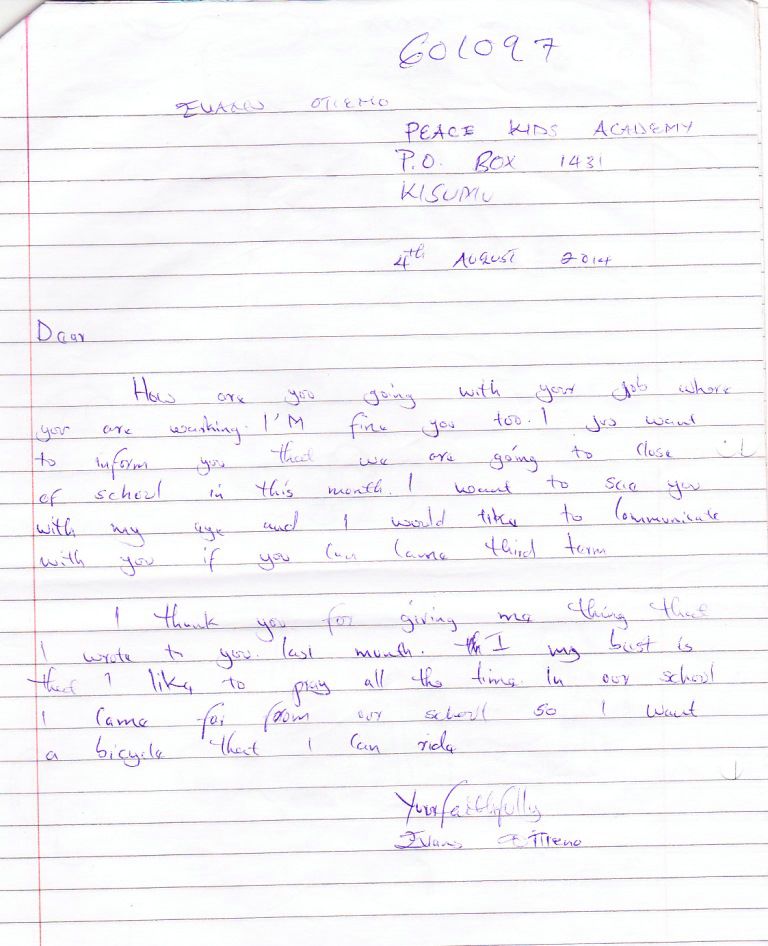 601097
EVANS OTIENO
PEACE KIDS ACADEMY
P.O. BOX 1431
KISUMU
4th AUGUST 2014
Dear
How are you going with your job where
you are working. I'M fine you too. I jus want
to inform you that we are going to close
of school in this month. I want to see you
with my age and I would like to communicate
with you if you can came third term
I thank you for giving me thing that
I wrote to you. last month. I my best is
that I like to pray all the time. In our school
I came far from our school so I want
a bicycle that I can ride
Your faithfully
Evans Otieno